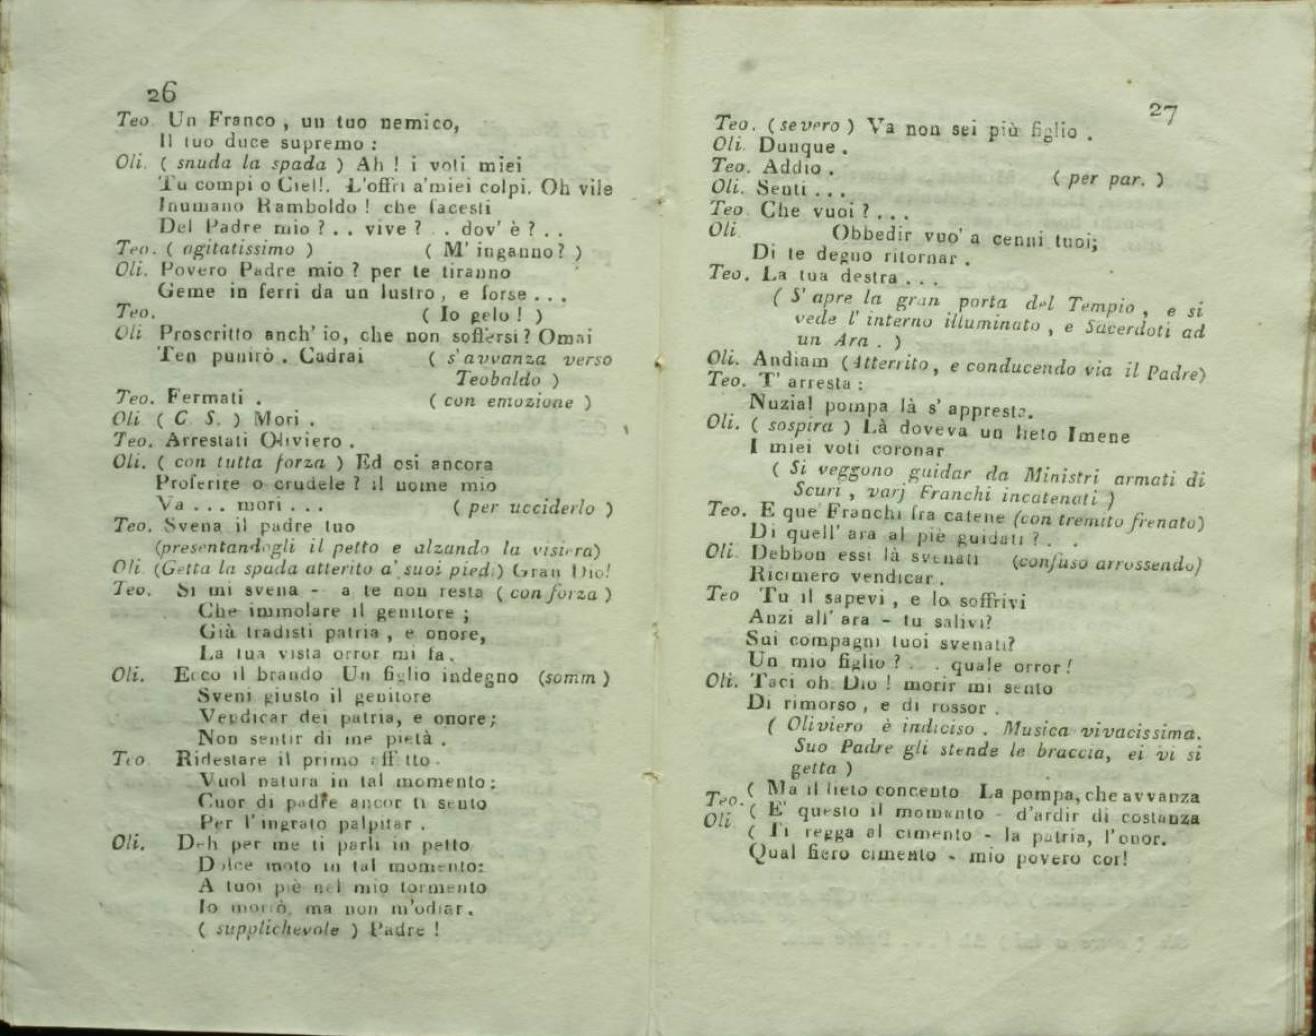 26
Teo. Un Franco , un tuo nemico,
Il tuo duce supremo :
Oli. ( snuda la spada ) Ah ! i voti miei
Tu compi o Ciel!. L'offri a'miei colpi. Oh vile
Inumano Ramboldo ! che facesti
Del Padre mio ? . . vive ? . . dov' è ? . .
Teo. ( agitatissimo ) ( M' inganno ? )
Oli. Povero Padre mio ? per te tiranno
Geme in ferri da un lustro , e forse . . .
Teo. ( Io gelo ! )
Oli Proscritto anch' io, che non soffersi ? Omai
Ten punirò . Cadrai ( s'avvanza verso
Teobaldo )
Teo. Fermati . ( con emozione )
Oli ( C S. ) Mori .
Teo. Arrestati Oliviero .
Oli. ( con tutta forza ) Ed osi ancora
Proferire o crudele ? il nome mio
Va . . . mori . . . ( per ucciderlo )
Teo. Svena il padre tuo
(presentandogli il petto e alzando la visiera)
Oli (Getta la spada atterito a' suoi piedi) Gran Dio!
Teo. Si mi svena - a te non resta ( con forza )
Che immolare il genitore ;
Già tradisti patria , e onore,
La tua vista orror mi fa .
Oli. Ecco il brando Un figlio indegno (somm )
Sveni giusto il genitore
Vendicar dei patria, e onore;
Non sentir di me pietà .
Teo Ridestare il primo affetto
Vuol natura in tal momento :
Cuor di padre ancor ti sento
Per l'ingrato palpitar .
Oli. Deh per me ti parli in petto
Dolce moto in tal momento:
A tuoi piè nel mio tormento
Io morrò, ma non m'odiar .
( supplichevole ) Padre !
27
Teo. ( severo ) Va non sei più figlio .
Oli. Dunque .
Teo. Addio . ( per par. )
Oli. Senti . . .
Teo Che vuoi ? . . .
Oli Obbedir vuo' a cenni tuoi;
Di te degno ritornar .
Teo. La tua destra . . .
( S' apre la gran porta del Tempio , e si
vede l' interno illuminato , e Sacerdoti ad
un Ara . )
Oli. Andiam (Atterrito, e conducendo via il Padre)
Teo. T' arresta :
Nuzial pompa là s' appresta.
Oli. ( sospira ) Là doveva un lieto Imene
I miei voti coronar
( Si veggono guidar da Ministri armati di
Scuri , varj Franchi incatenati )
Teo. E que' Franchi fra catene (con tremito frenato)
Di quell' ara al piè guidati ? . .
Oli. Debbon essi là svenati (confuso arrossendo)
Ricimero vendicar .
Teo Tu il sapevi , e lo soffrivi
Anzi all' ara - tu salivi?
Sui compagni tuoi svenati?
Un mio figlio ? . . quale orror !
Oli. Taci oh Dio ! morir mi sento
Di rimorso , e di rossor .
( Oliviero è indiciso . Musica vivacissima.
Suo Padre gli stende le braccia, ei vi si
getta )
Teo. ( Ma il lieto concento La pompa, che avvanza
Oli ( E' questo il momento - d'ardir di costanza
( Ti regga al cimento - la patria, l'onor.
Qual fiero cimento - mio povero cor!